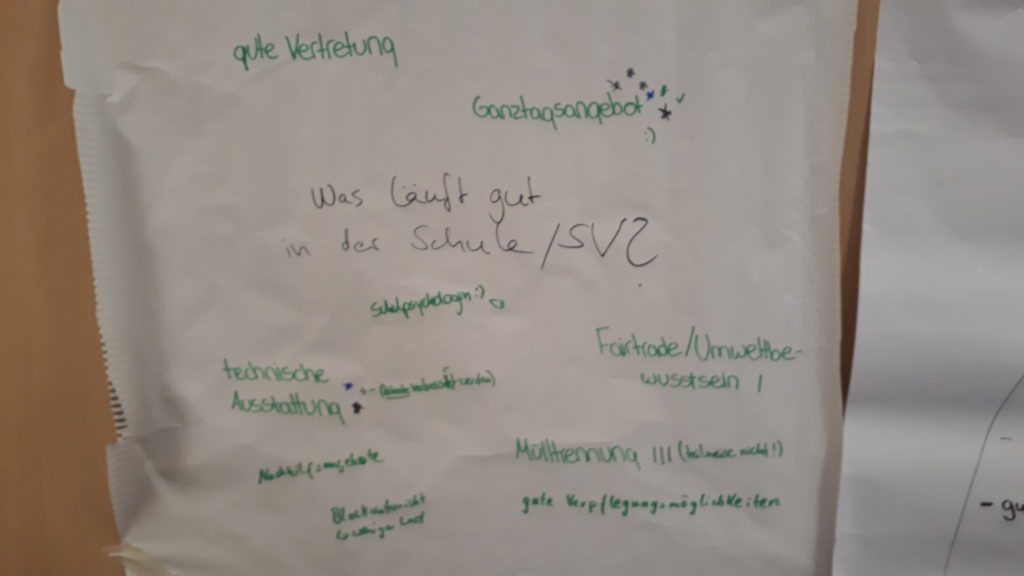 gute Vertretung
Ganztagsangebot
:)
Was läuft gut
in der Schule/SV?
Schulpsychologin :)
Fairtrade/Umweltbe-
wusstsein I
technische
Ausstattung
werden)
Mülltrennung III (teilweise nicht!)
Nachhilfeangebote
gute Verpflegungsmöglichkeiten
Blockunterricht
↳ weniger
- gu